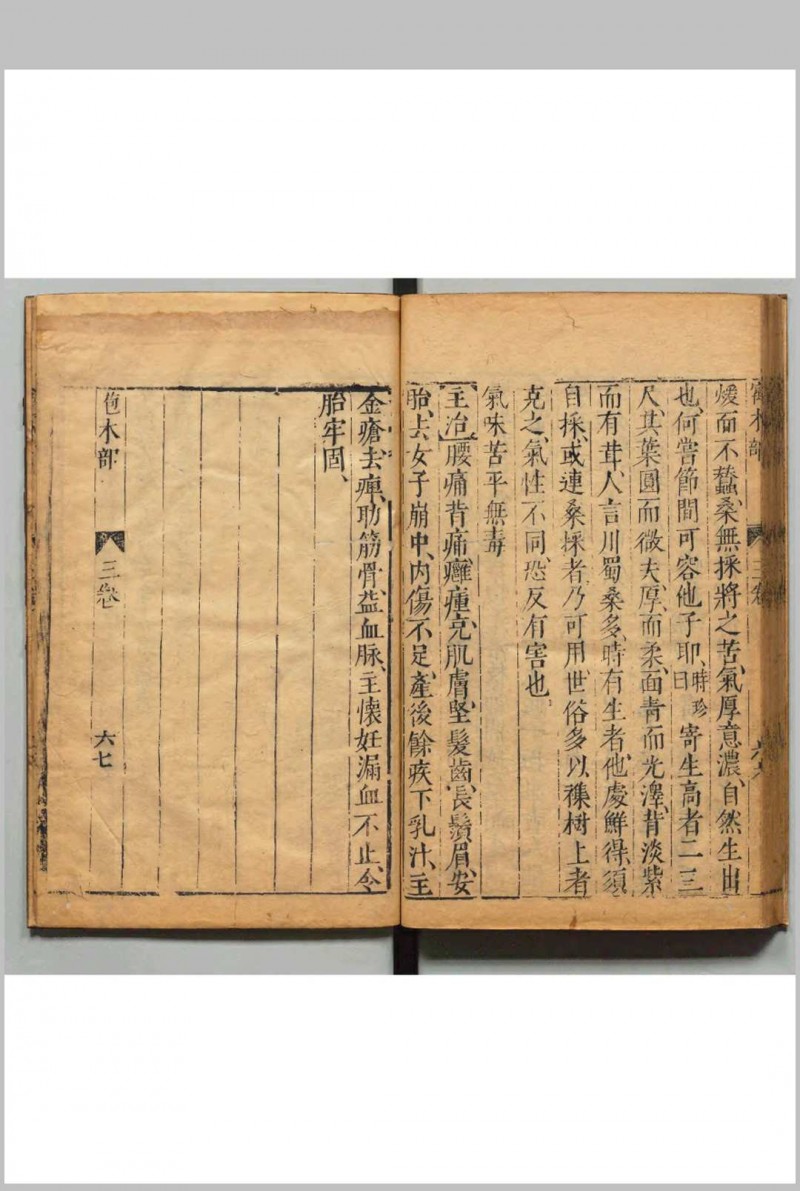 木部 三卷
煖而不蠶桑無採將之苦氣厚意濃、自然生出
也、何嘗節間可容他子耶、時珍曰寄生高者二三
尺、其葉圓而微大、厚而柔、面青而光澤、背淡紫
而有茸、人言川蜀桑多、時有生者、他處鮮得、須
自採、或連桑採者、乃可用世俗多以襍树上者
克之、氣性不同、恐反有害也、
氣味苦平無毒
主治腰痛背痛、癰瘇、充肌膚、堅髮齒、長鬚眉、安
胎、去女子崩中、內傷不足、產後餘疾下乳汁、主
金瘡去痺、助筋骨、益血脉、主懷妊漏血不止、令
胎牢固、
木部 三卷 六七